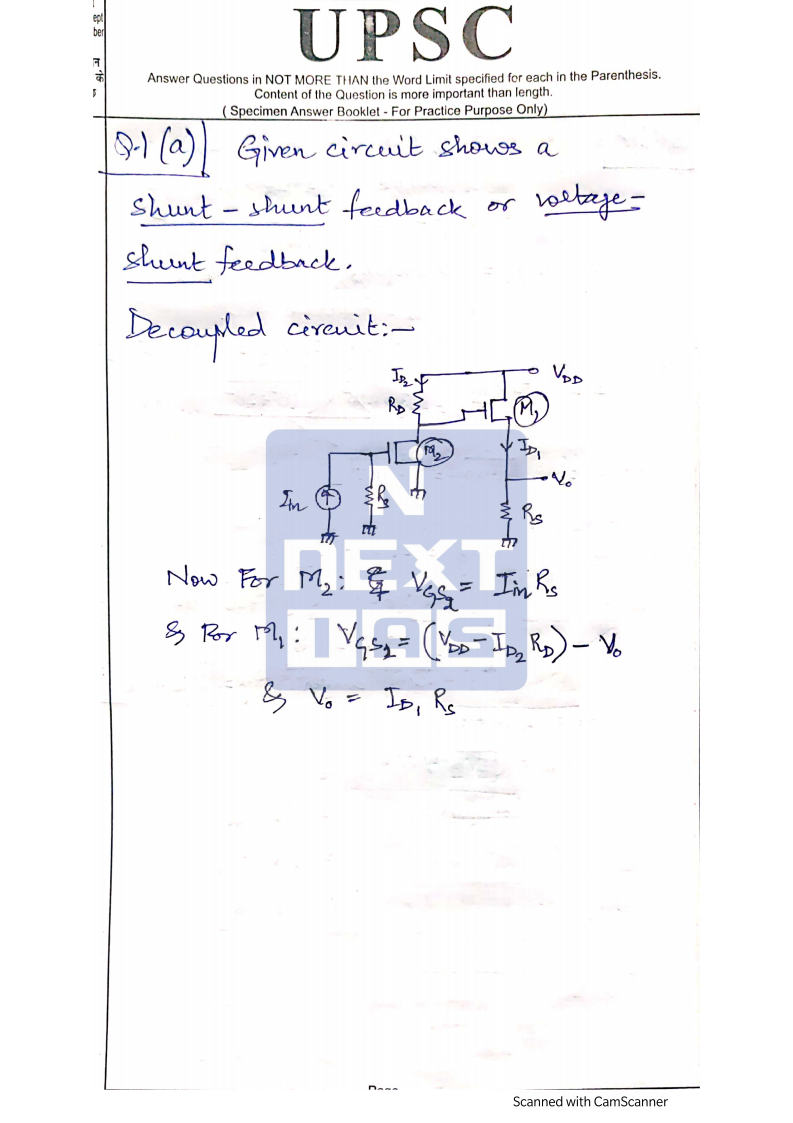 ept
ber
न
के
UPSC
Answer Questions in NOT MORE THAN the Word Limit specified for each in the Parenthesis.
Content of the Question is more important than length.
( Specimen Answer Booklet - For Practice Purpose Only)
Q.1 (a) Given circuit shows a
shunt - shunt feedback or voltage-
shunt feedback.
Decoupled circuit:-
I_D2
V_DD
R_D
M_1
M_2
I_D1
V_o
I_in
R_s
R_s
N
NEXT
IAS
Now For M_2: V_GS2 = I_in R_s
& For M_1: V_GS1 = (V_DD - I_D2 R_D) - V_o
& V_o = I_D1 R_s
Scanned with CamScanner